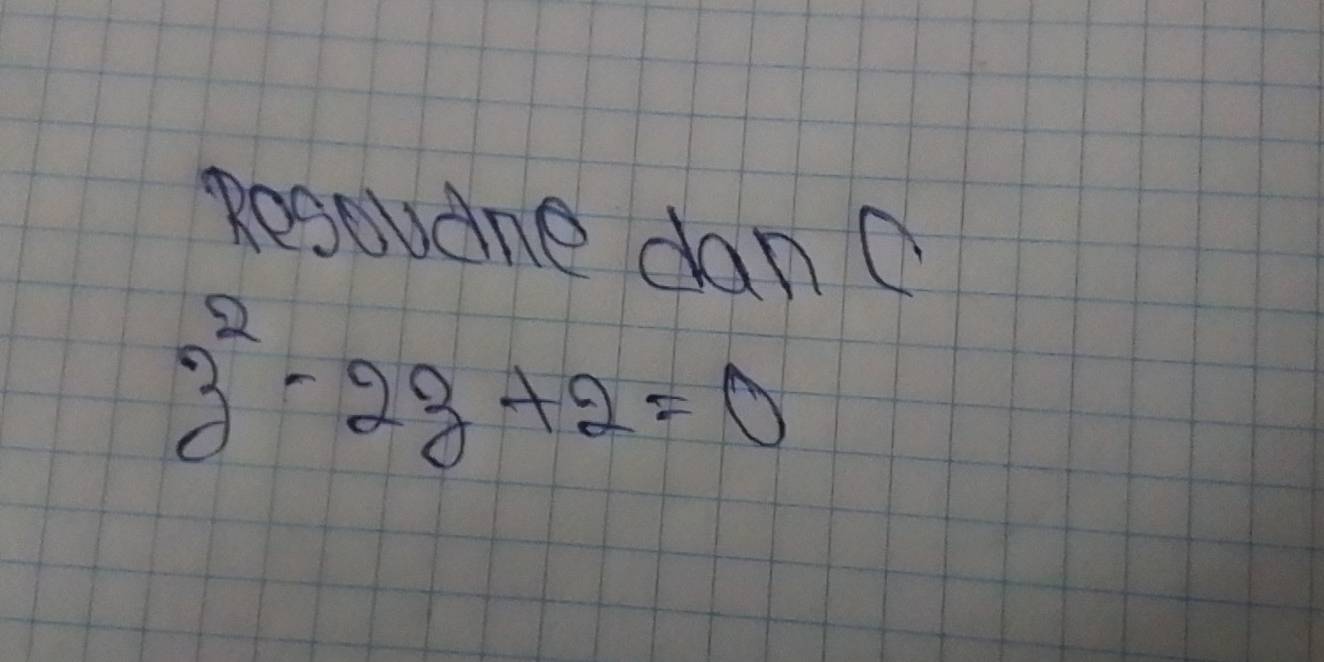 Resoudre dan C
z² - 2z + 2 = 0